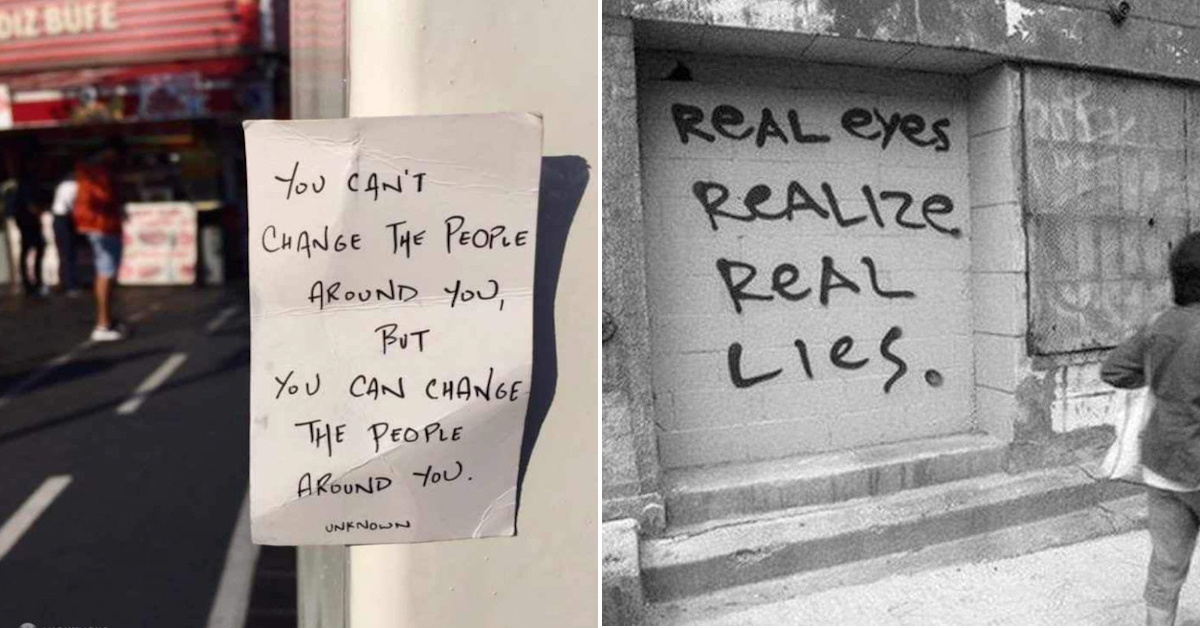 DIZ BÜFE
YOU CAN'T
CHANGE THE PEOPLE
AROUND YOU,
BUT
YOU CAN CHANGE
THE PEOPLE
AROUND YOU.
UNKNOWN
REAL eyes
REALIZE
REAL
LIES.